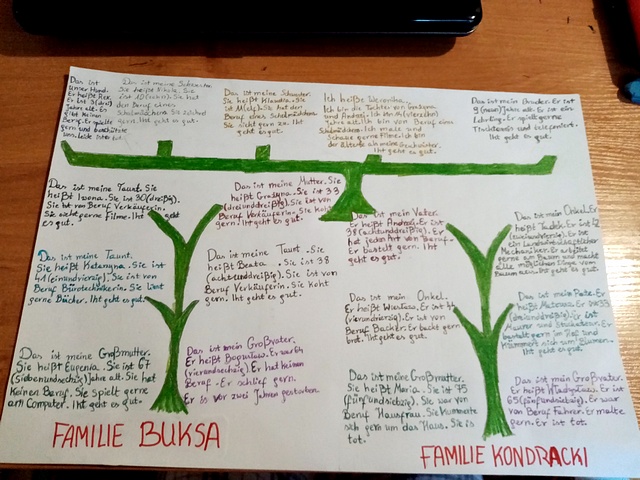 Das ist
unser Hund.
Er heißt Rex.
Er ist 3(drei)
Jahre alt. Er
gibt keinen
Beruf. Er spielt
gern und
Das ist meine
Sie heißt Nikola. Sie
ist
den Beruf eines
Schulmädchens. Sie zeichnet
gern. Iht geht es gut.
Das ist meine Schwester.
Sie heißt Klaudia. Sie
ist 11(elf). Sie hat den
Beruf eines Schulmädchens
Sie sieht gern zu. Iht
geht es gut.
Ich heiße Weronika.
Ich bin die Tochter von Grażyna
und Andrzej. Ich bin 14(vierzehn)
Jahre alt. Ich bin von Beruf eine
Schulmädchen. Ich male und
Schaue gerne Filme. Ich bin
der Älteste als meine Geschwister.
Iht geht es gut.
Das ist mein Bruder. Er ist
9(neun) Jahre alt. Er ist ein
Lehrling. Er spielt gerne
Tischtennis und telefoniert.
Iht geht es gut.
Das ist meine Taunt. Sie
heißt Iwona. Sie ist 30(dreißig).
Sie ist von Beruf Verkäuferin.
Sie sieht gerne Filme. Iht geht
es gut.
Das ist meine Mutter. Sie
heißt Grażyna. Sie ist 33
(dreiunddreißig). Sie ist von
Beruf Verkäuferin. Sie kocht
gern. Iht geht es gut.
Das ist mein Vater.
Er heißt Andrzej. Er ist
38(achtunddreißig). Er hat
jeden Art von Beruf.
Er bastelt gern. Iht
geht es gut.
Das ist mein Onkel. Er
heißt Tadek. Er ist 42
(zweiundvierzig). Er ist
ein Landwirtschaftlicher
Mechaniker. Er arbeitet
gerne am Baum und macht
alle möglichen Dinge vom
Baum aus. Iht geht es gut.
Das ist meine Taunt.
Sie heißt Katarzyna. Sie ist
41(einundvierzig). Sie ist von
Beruf Bürotechnikerin. Sie liest
gerne Bücher. Iht geht es gut.
Das ist meine Taunt. Sie
heißt Beata. Sie ist 38
(achtunddreißig). Sie ist von
Beruf Verkäuferin. Sie kocht
gern. Iht geht es gut.
Das ist mein Onkel.
Er heißt Wiesław. Er ist 44
(vierundvierzig). Er ist von
Beruf Bäcker. Er backt gern
brot. Iht geht es gut.
Das ist mein Pate. Er
heißt Mateusz. Er ist 33
(dreiunddreißig). Er ist
Maurer und
bastelt gern im Feld und
kümmert sich um Blumen.
Iht geht es gut.
Das ist meine Großmutter.
Sie heißt Eugenia. Sie ist 67
(siebenundsechzig) Jahre alt. Sie hat
keinen Beruf. Sie spielt gerne
am Computer. Iht geht es gut.
Das ist mein Großvater.
Er heißt Bogusław. Er war 64
(vierundsechzig). Er hat keinen
Beruf. Er schlief gern.
Er is vor zwei Jahren gestorben.
Das ist meine Großmutter.
Sie heißt Maria. Sie ist 75
(fünfundsiebzig). Sie war von
Beruf Hausfrau. Sie kümmerte
sich gern um das Haus. Sie is
tot.
Das ist mein Großvater.
Er heißt Władysław. Er ist
65(fünfundsechzig). Er war
von Beruf Fahrer. Er malte
gern. Er ist tot.
FAMILIE BUKSA
FAMILIE KONDRACKI